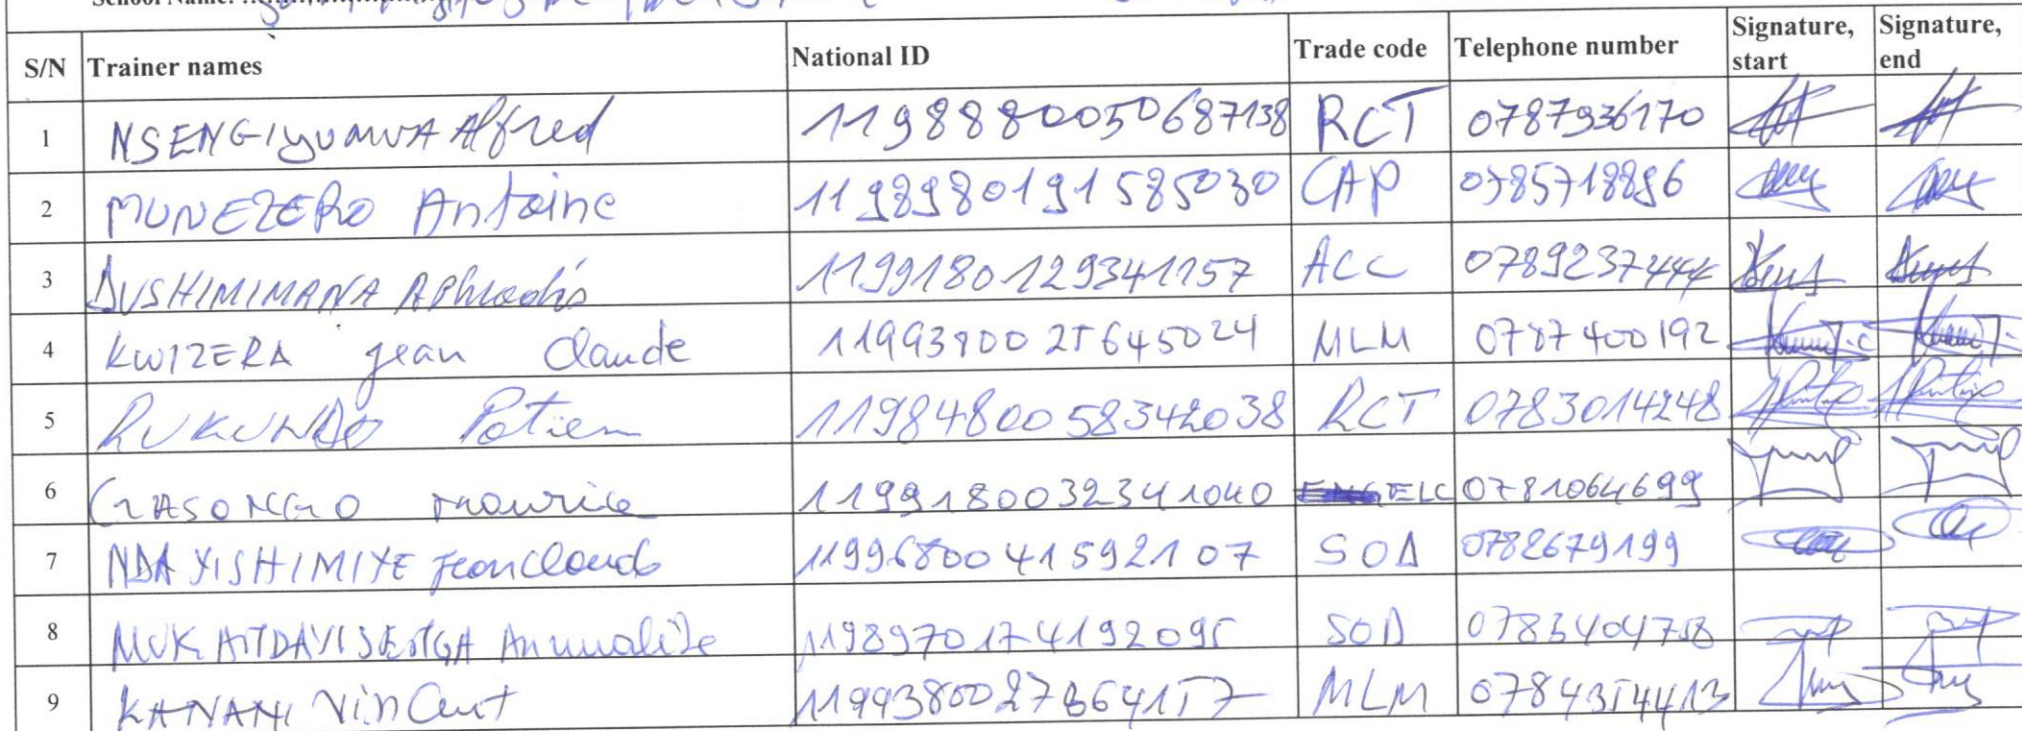 S/N Trainer names National ID Trade code Telephone number Signature, start Signature, end
1 NSENGIYUMVA Alfred 1198880050687138 RCT 0787936170
2 MUNEZERO Antoine 1198980191585030 CAP 0785718896
3 DUSHIMIMANA Aphrodis 1199180129341157 ACC 0789237444
4 KWIZERA jean Claude MLM 0787400192
5 RUKUNDO Potien 1198480058342038 RCT 0783014248
6 GASONGO maurice 1199180032341040 ELC 0781064699
7 NDAYISHIMIYE Jean Claude 1199680041592107 SOD 0782679199
8 1198970174192095 SOD 0783404758
9 KANANI Vincent MLM 0784354413